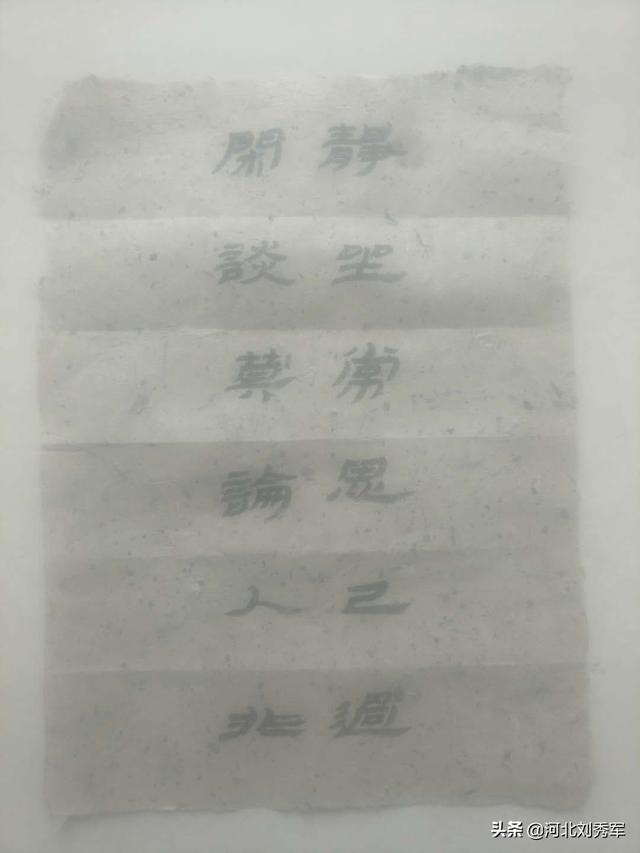 靜坐常思己過
閑談莫論人非
头条 @河北刘秀军